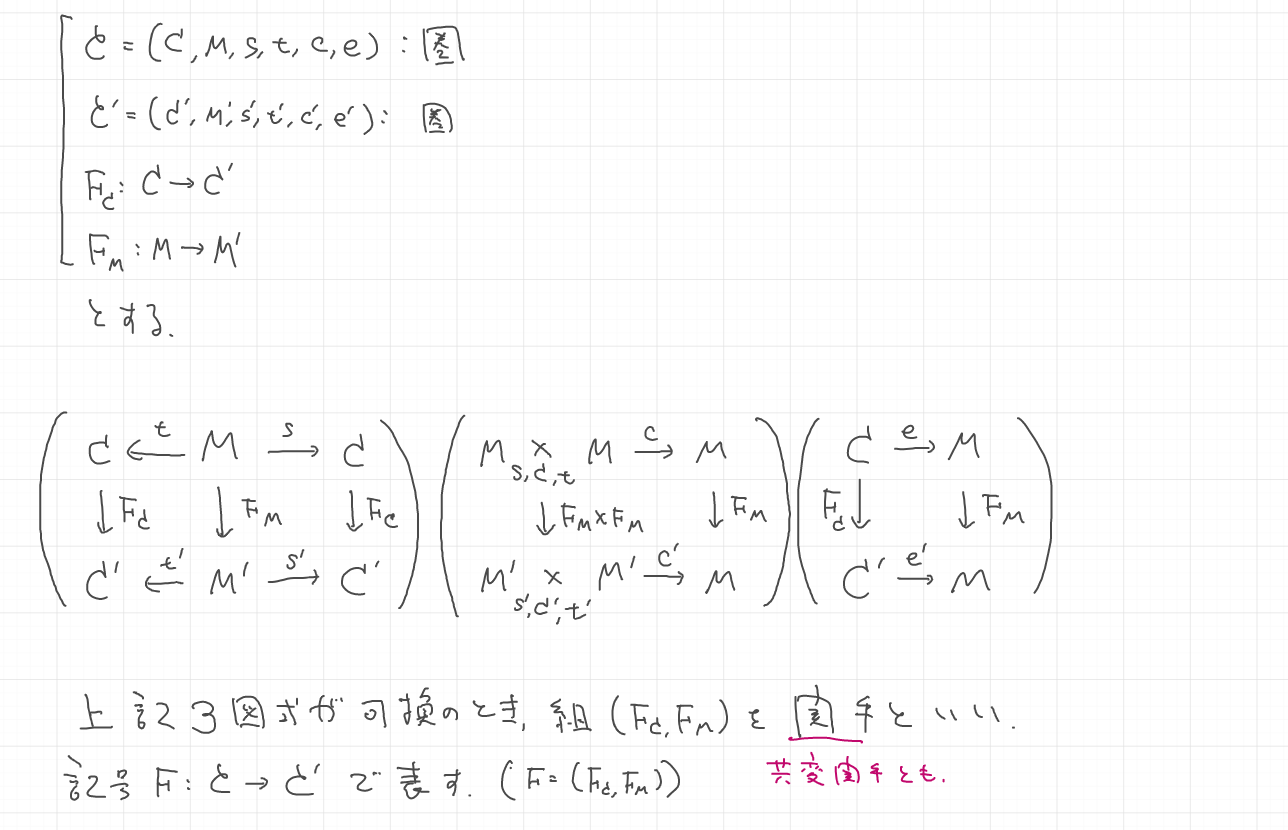 𝒞 = (C, M, s, t, c, e) : 圏
𝒞' = (C', M', s', t', c', e') : 圏
F_C : C → C'
F_M : M → M'
とする.
C ←t M →s C
↓F_C ↓F_M ↓F_C
C' ←t' M' →s' C'
M ×_{s,C,t} M →c M
↓F_M×F_M ↓F_M
M' ×_{s',C',t'} M' →c' M
C →e M
F_C↓ ↓F_M
C' →e' M
上記3図式が可換のとき, 組 (F_C, F_M) を 函手といい.
記号 F : 𝒞 → 𝒞' で表す. (F = (F_C, F_M))
共変函手とも.